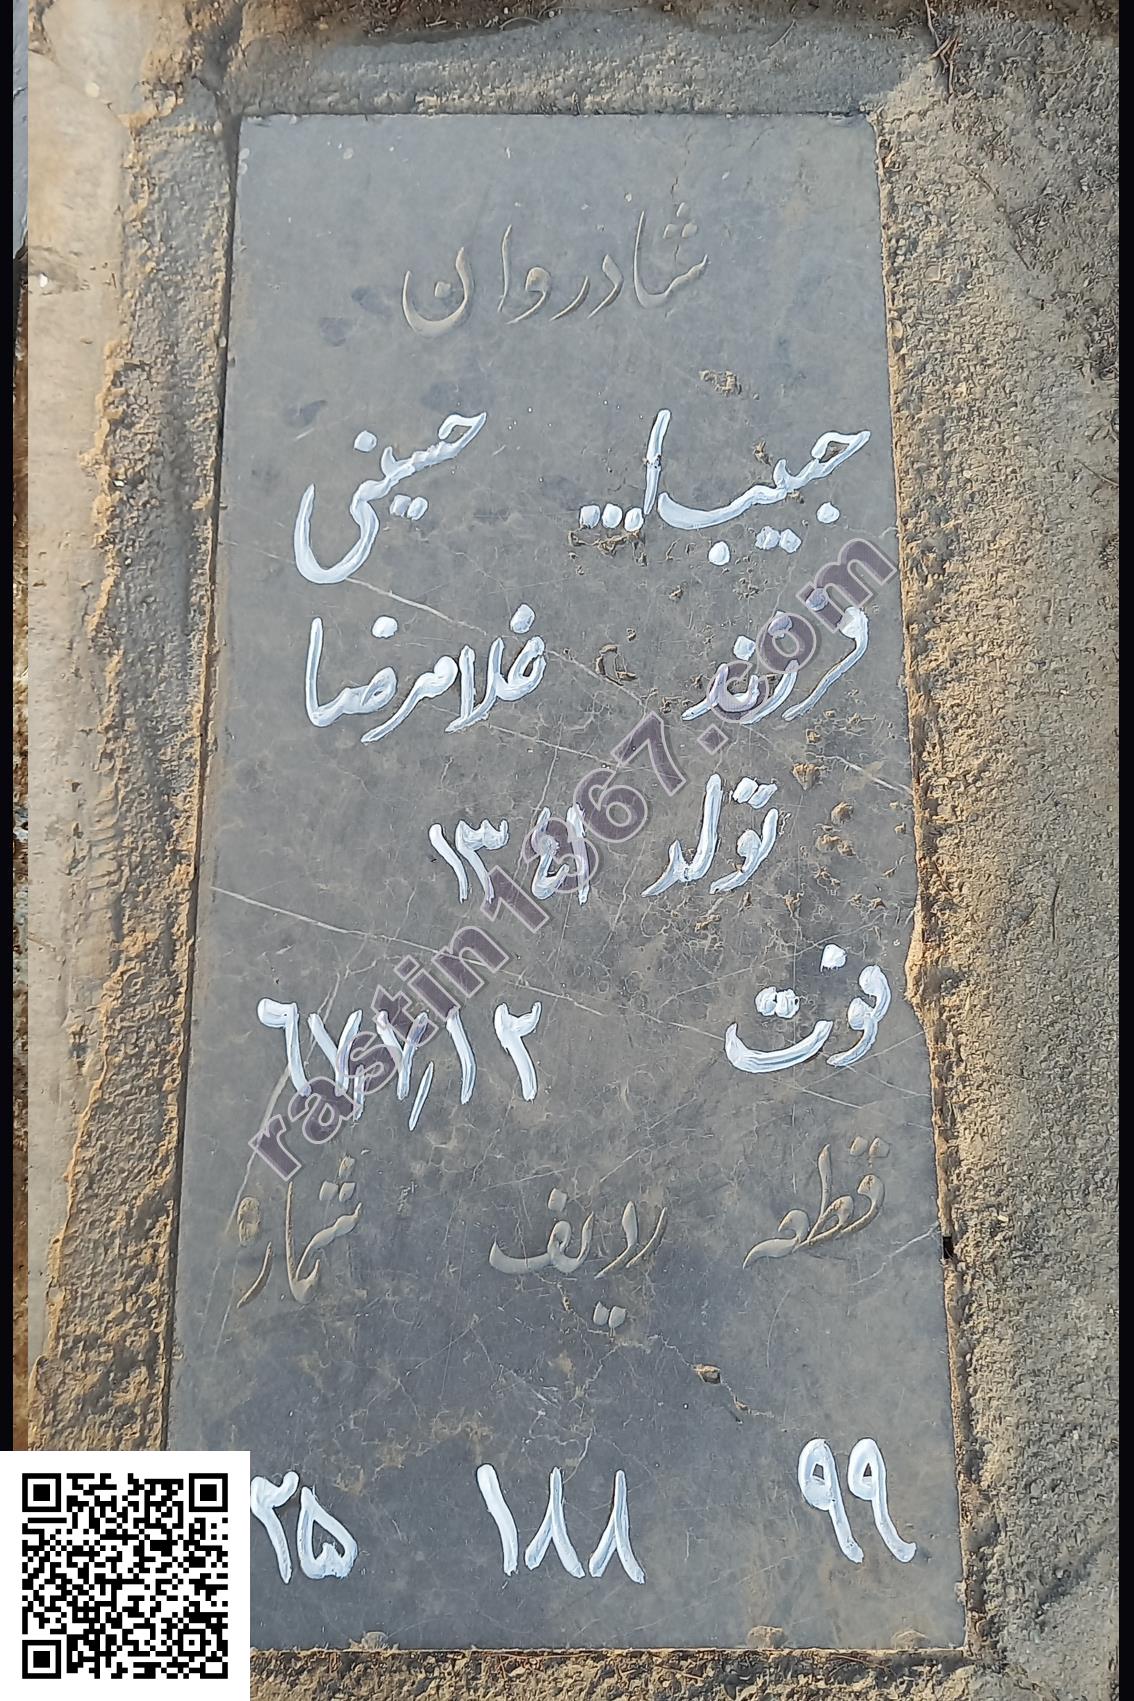 شادروان
حبیب ا... حسینی
فرزند غلامرضا
تولد ۱۳۴۱
فوت ۶۷,۷,۱۲
قطعه ردیف شماره
۹۹ ۱۸۸ ۲۵
rastin1367.com